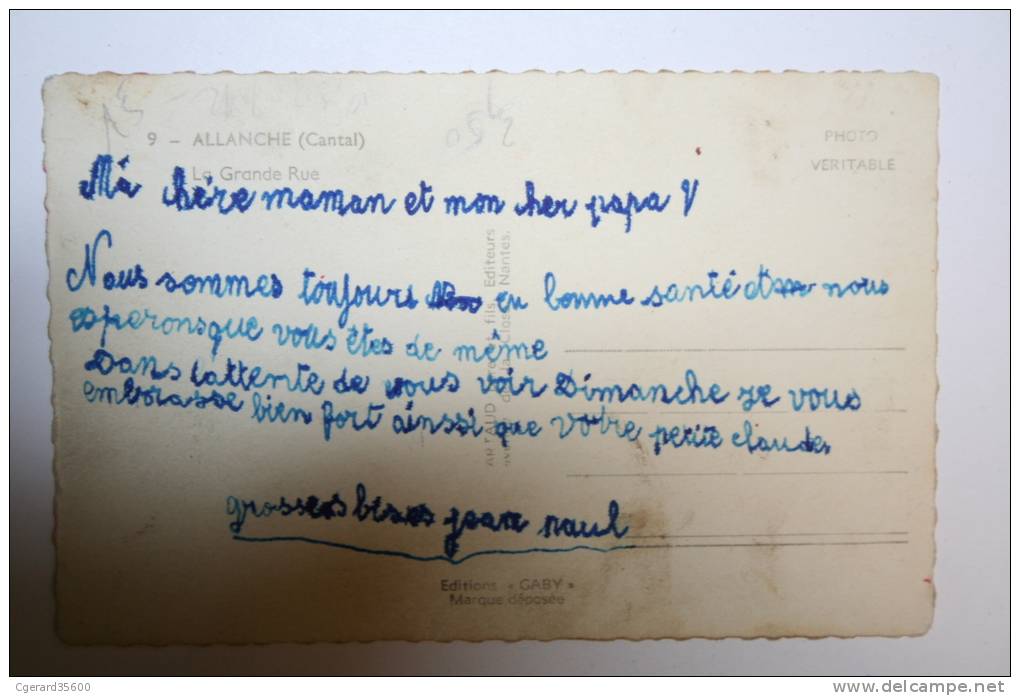 9 – ALLANCHE (Cantal)
La Grande Rue
PHOTO
VERITABLE
Ma chère maman et mon cher papa
Nous sommes toujours en bonne santé et nous
esperons que vous êtes de même
Dans lattente de vous voir Dimanche je vous
embrasse bien fort ainssi que votre petite claude
grosses bises jean paul
ARTAUD fils, Editeurs
Nantes.
Editions « GABY »
Marque déposée
Cgerard35600
www.delcampe.net